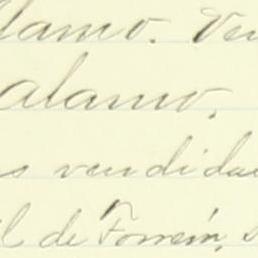 alamo. Ven
alamo.
s vendida
l de Torreón,